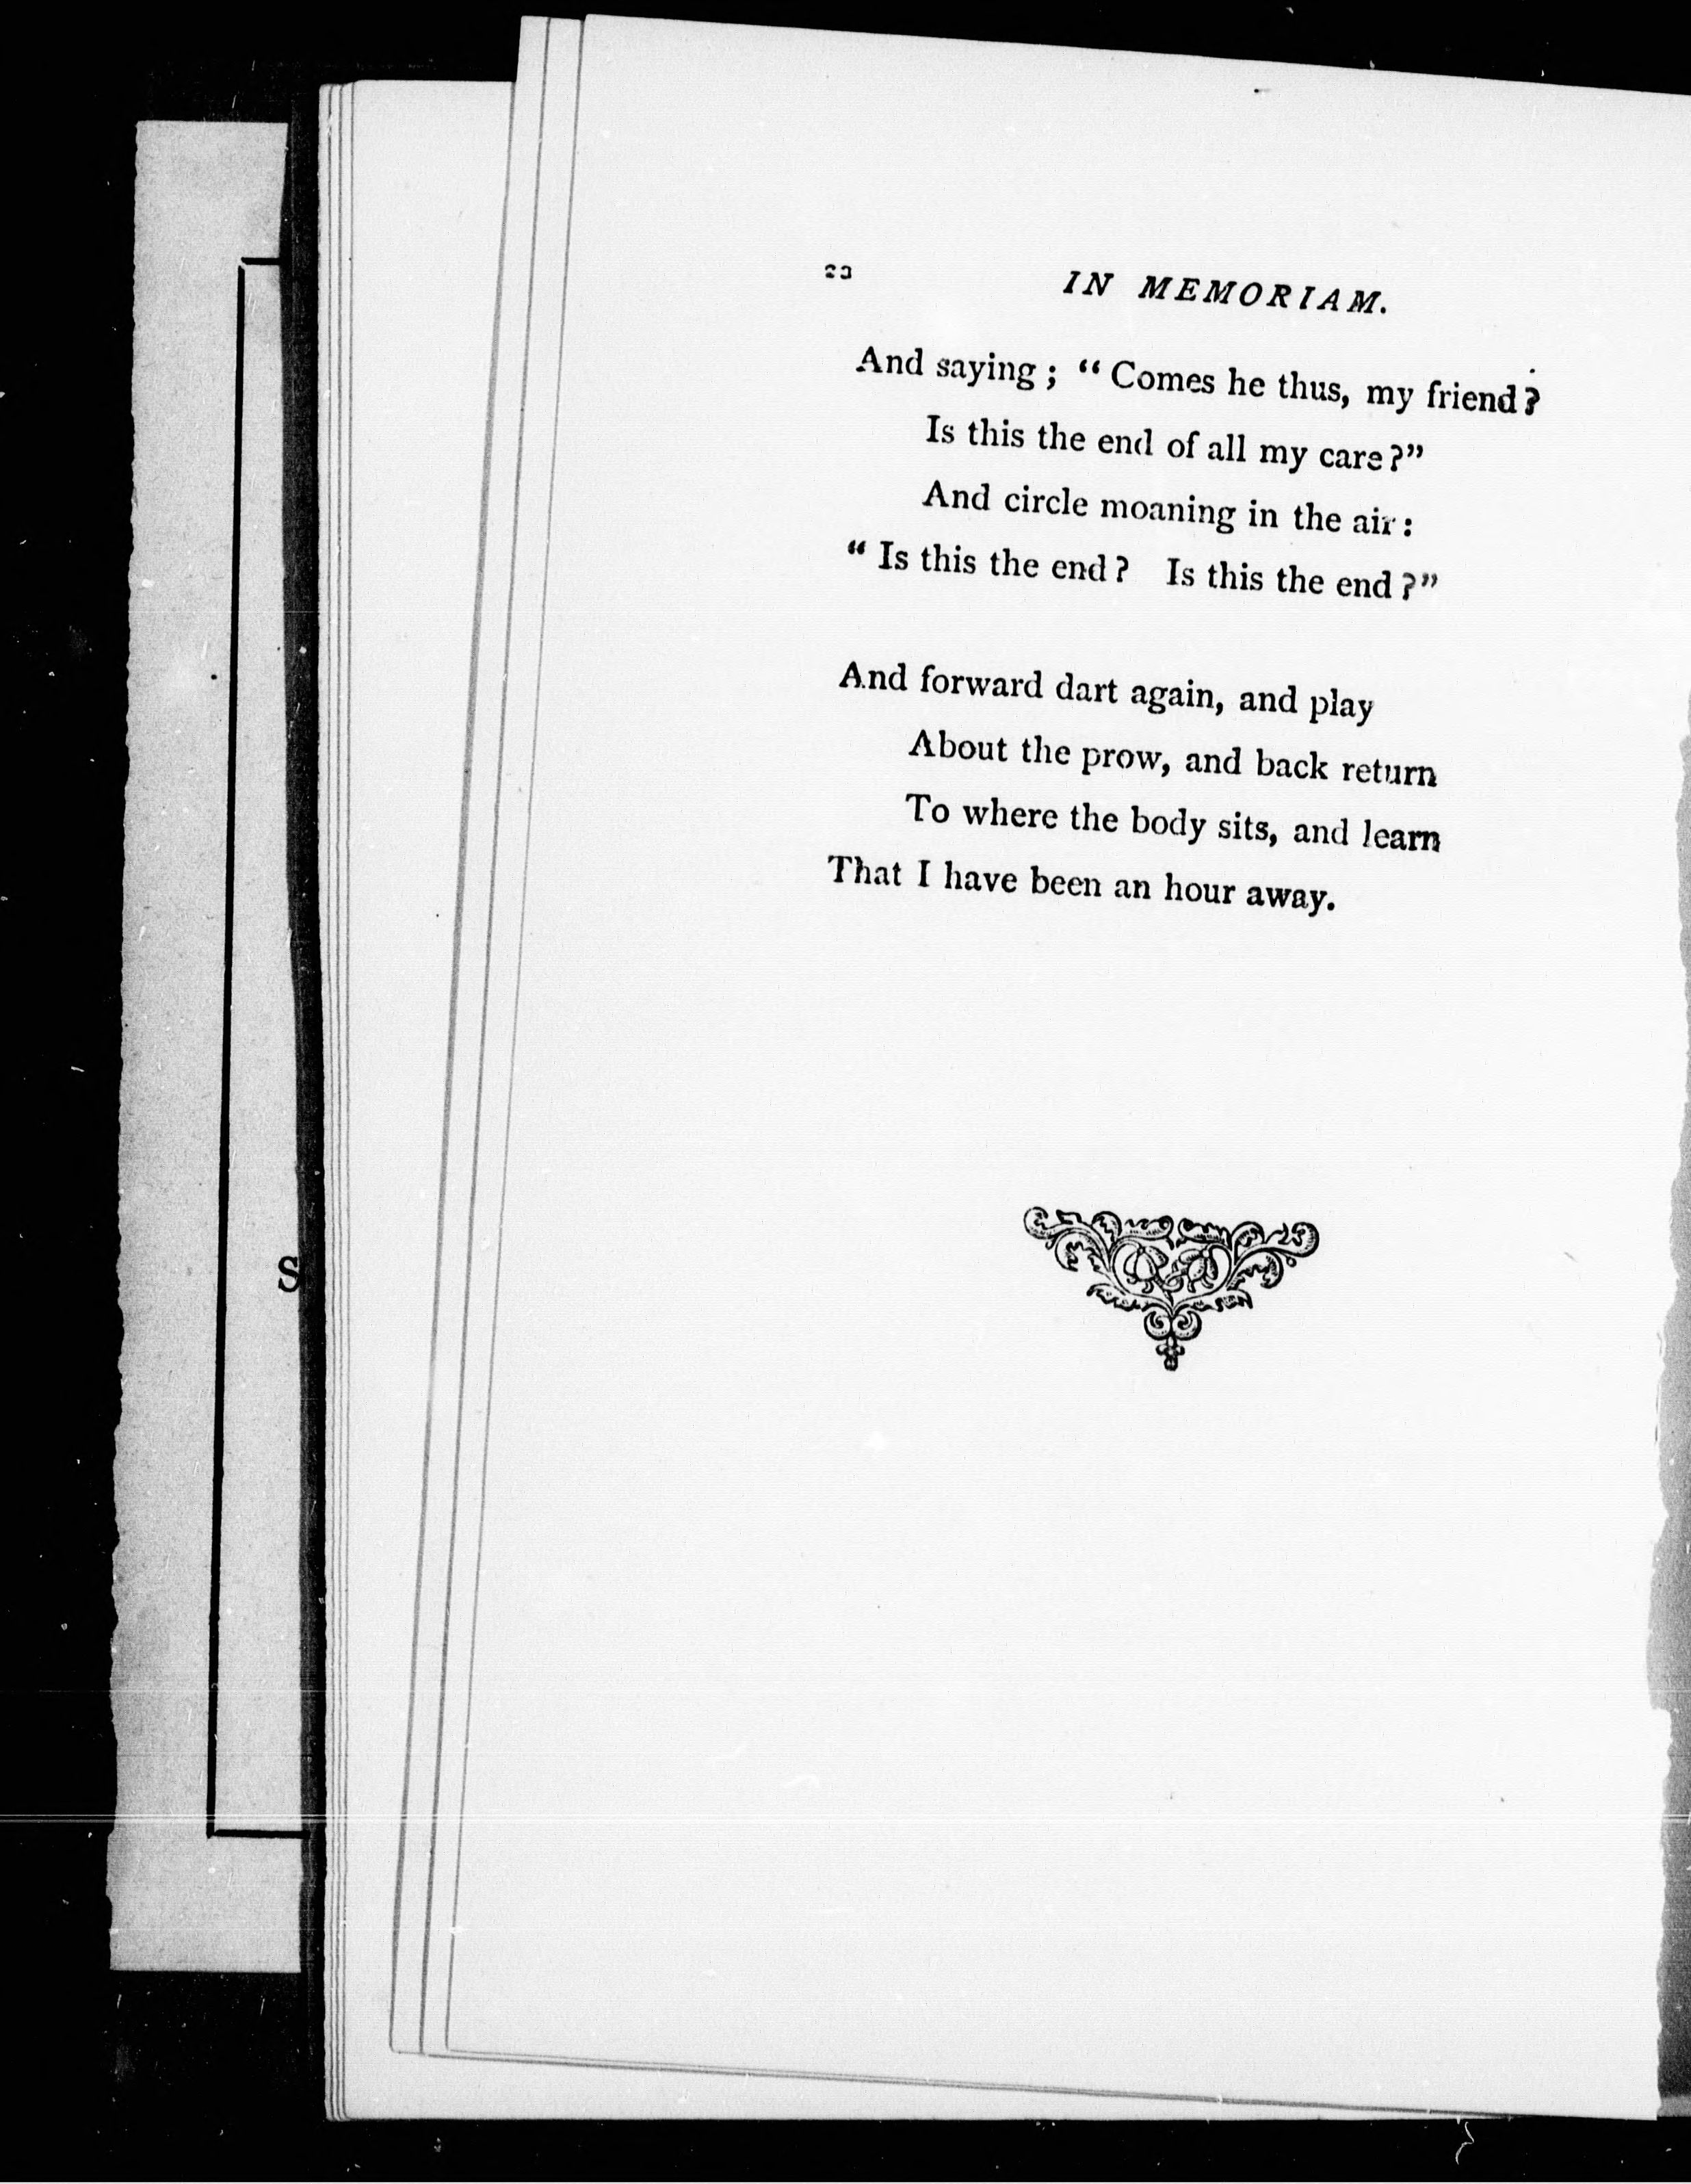 IN MEMORIAM.
And saying; “Comes he thus, my friend?
Is this the end of all my care?”
And circle moaning in the air:
“Is this the end? Is this the end?”
And forward dart again, and play
About the prow, and back return
To where the body sits, and learn
That I have been an hour away.
S